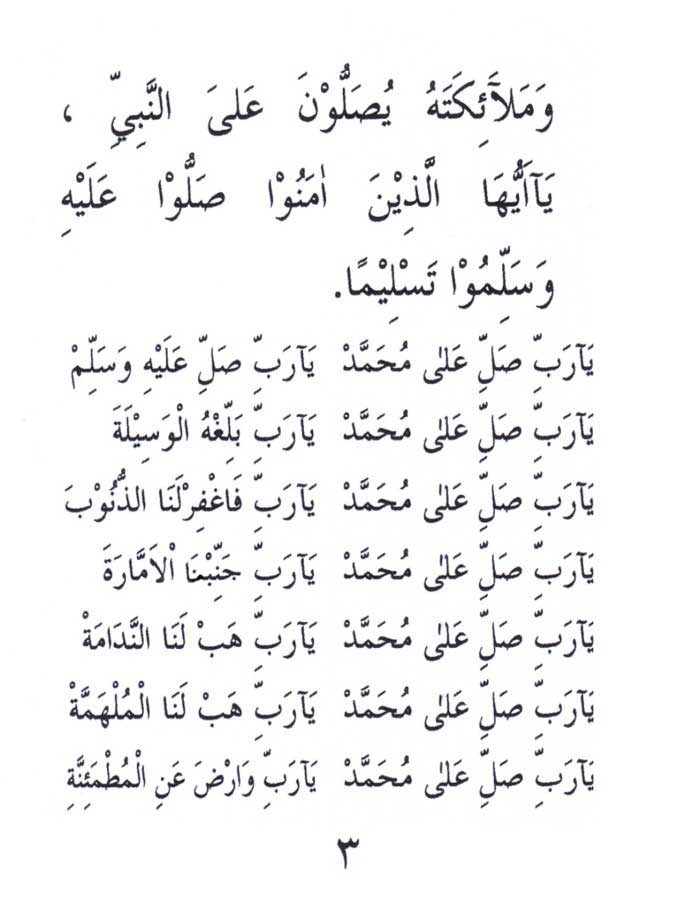 وَمَلَآئِكَتَهُ يُصَلُّوْنَ عَلىَ النَّبِيِّ ،
يَآاَيُّهَا الَّذِيْنَ اٰمَنُوْا صَلُّوْا عَلَيْهِ
وَسَلِّمُوْا تَسْلِيْمًا.
يَآرَبِّ صَلِّ عَلٰى مُحَمَّدْ يَآرَبِّ صَلِّ عَلَيْهِ وَسَلِّمْ
يَآرَبِّ صَلِّ عَلٰى مُحَمَّدْ يَآرَبِّ بَلِّغْهُ الْوَسِيْلَةَ
يَآرَبِّ صَلِّ عَلٰى مُحَمَّدْ يَآرَبِّ فَاغْفِرْلَنَا الذُّنُوْبَ
يَآرَبِّ صَلِّ عَلٰى مُحَمَّدْ يَآرَبِّ جَنِّبْنَا اْلاَمَّارَةَ
يَآرَبِّ صَلِّ عَلٰى مُحَمَّدْ يَآرَبِّ هَبْ لَنَا النَّدَامَةْ
يَآرَبِّ صَلِّ عَلٰى مُحَمَّدْ يَآرَبِّ هَبْ لَنَا الْمُلْهَمَّةْ
يَآرَبِّ صَلِّ عَلٰى مُحَمَّدْ يَآرَبِّ وَارْضَ عَنِ الْمُطْمَئِنَّةِ
٣